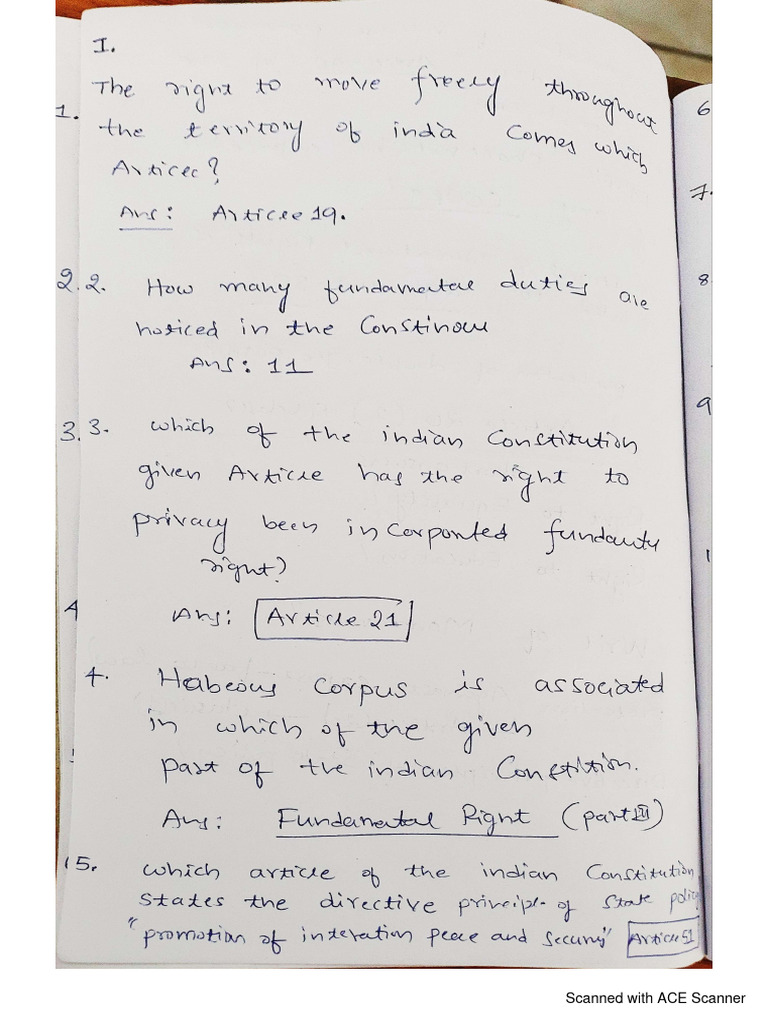 I.
1. The right to move freely throughout
the territory of india comes which
Article?
Ans: Article 19.
2. 2. How many fundamental duties are
noticed in the
Ans: 11
3. 3. which of the indian Constitution
given Article has the right to
privacy been incorponted
right?
Ans: Article 21
4. Habeous corpus is associated
in which of the given
part of the indian Constitution.
Ans: Fundamental Right (part III)
5. which article of the indian Constitution
states the directive principle of state policy
"promotion of interation peace and security" Article 51
6
7.
8
9
Scanned with ACE Scanner